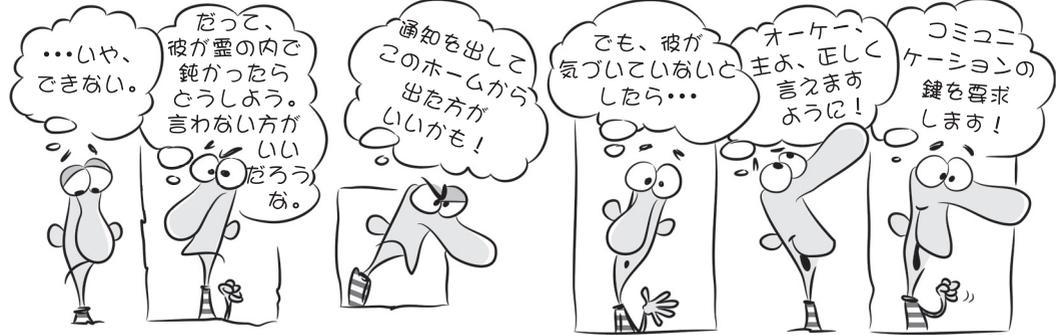 ・・・いや、
できない。
だって、
彼が霊の内で
鈍かったら
どうしよう。
言わない方が
いい
だろう
な。
通知を出して
このホームから
出た方が
いいかも！
でも、彼が
気づいていないと
したら・・・
オーケー、
主よ、正しく
言えます
ように！
コミュニ
ケーションの
鍵を要求
します！